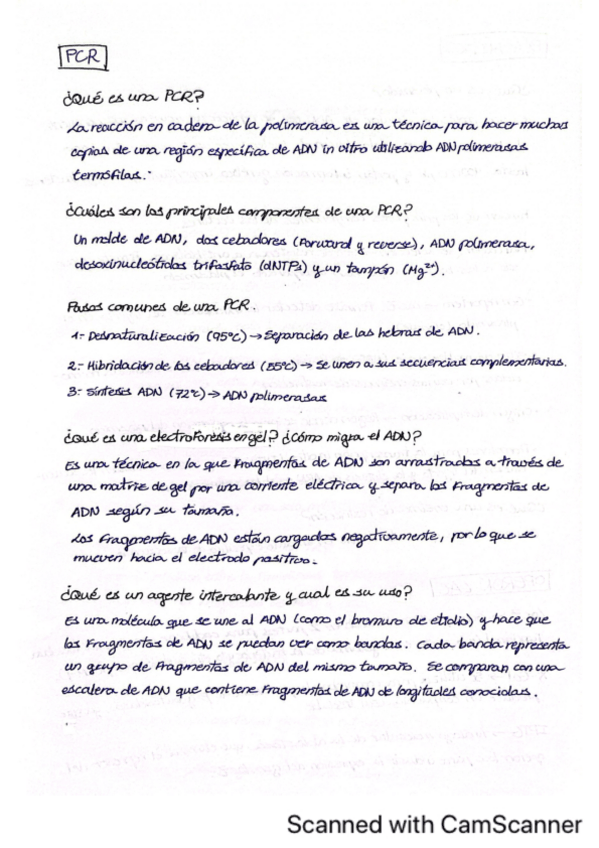 PCR
¿Qué es una PCR?
La reacción en cadena de la polimerasa es una técnica para hacer muchas
copias de una región específica de ADN in vitro utilizando ADN polimerasas
termófilas.
¿Cuáles son los principales componentes de una PCR?
Un molde de ADN, dos cebadores (forward y reverse), ADN polimerasa,
desoxinucleótidos trifosfato (dNTPs) y un tampón (Mg²⁺).
Pasos comunes de una PCR.
1.- Desnaturalización (95ºC) → Separación de las hebras de ADN.
2.- Hibridación de los cebadores (55ºC) → Se unen a sus secuencias complementarias.
3.- Síntesis ADN (72ºC) → ADN polimerasas
¿Qué es una electroforesis en gel? ¿Cómo migra el ADN?
Es una técnica en la que fragmentos de ADN son arrastrados a través de
una matriz de gel por una corriente eléctrica y separa los fragmentos de
ADN según su tamaño.
Los fragmentos de ADN están cargados negativamente, por lo que se
mueven hacia el electrodo positivo.
¿Qué es un agente intercalante y cual es su uso?
Es una molécula que se une al ADN (como el bromuro de etidio) y hace que
los fragmentos de ADN se puedan ver como bandas. Cada banda representa
un grupo de fragmentos de ADN del mismo tamaño. Se comparan con una
escalera de ADN que contiene fragmentos de ADN de longitudes conocidas.
Scanned with CamScanner